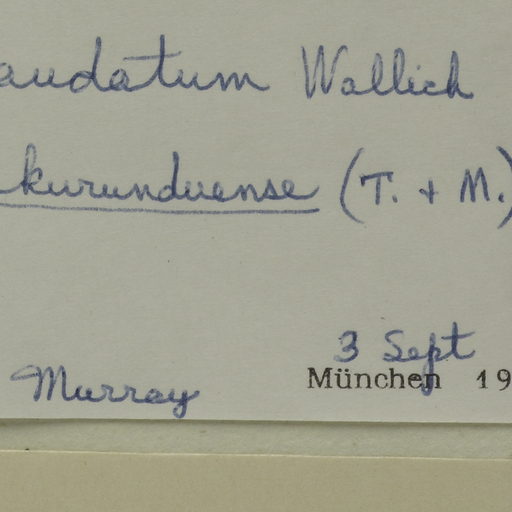 audatum Wallich
kurunduense (T. + M.)
3 Sept
Murray
München 19